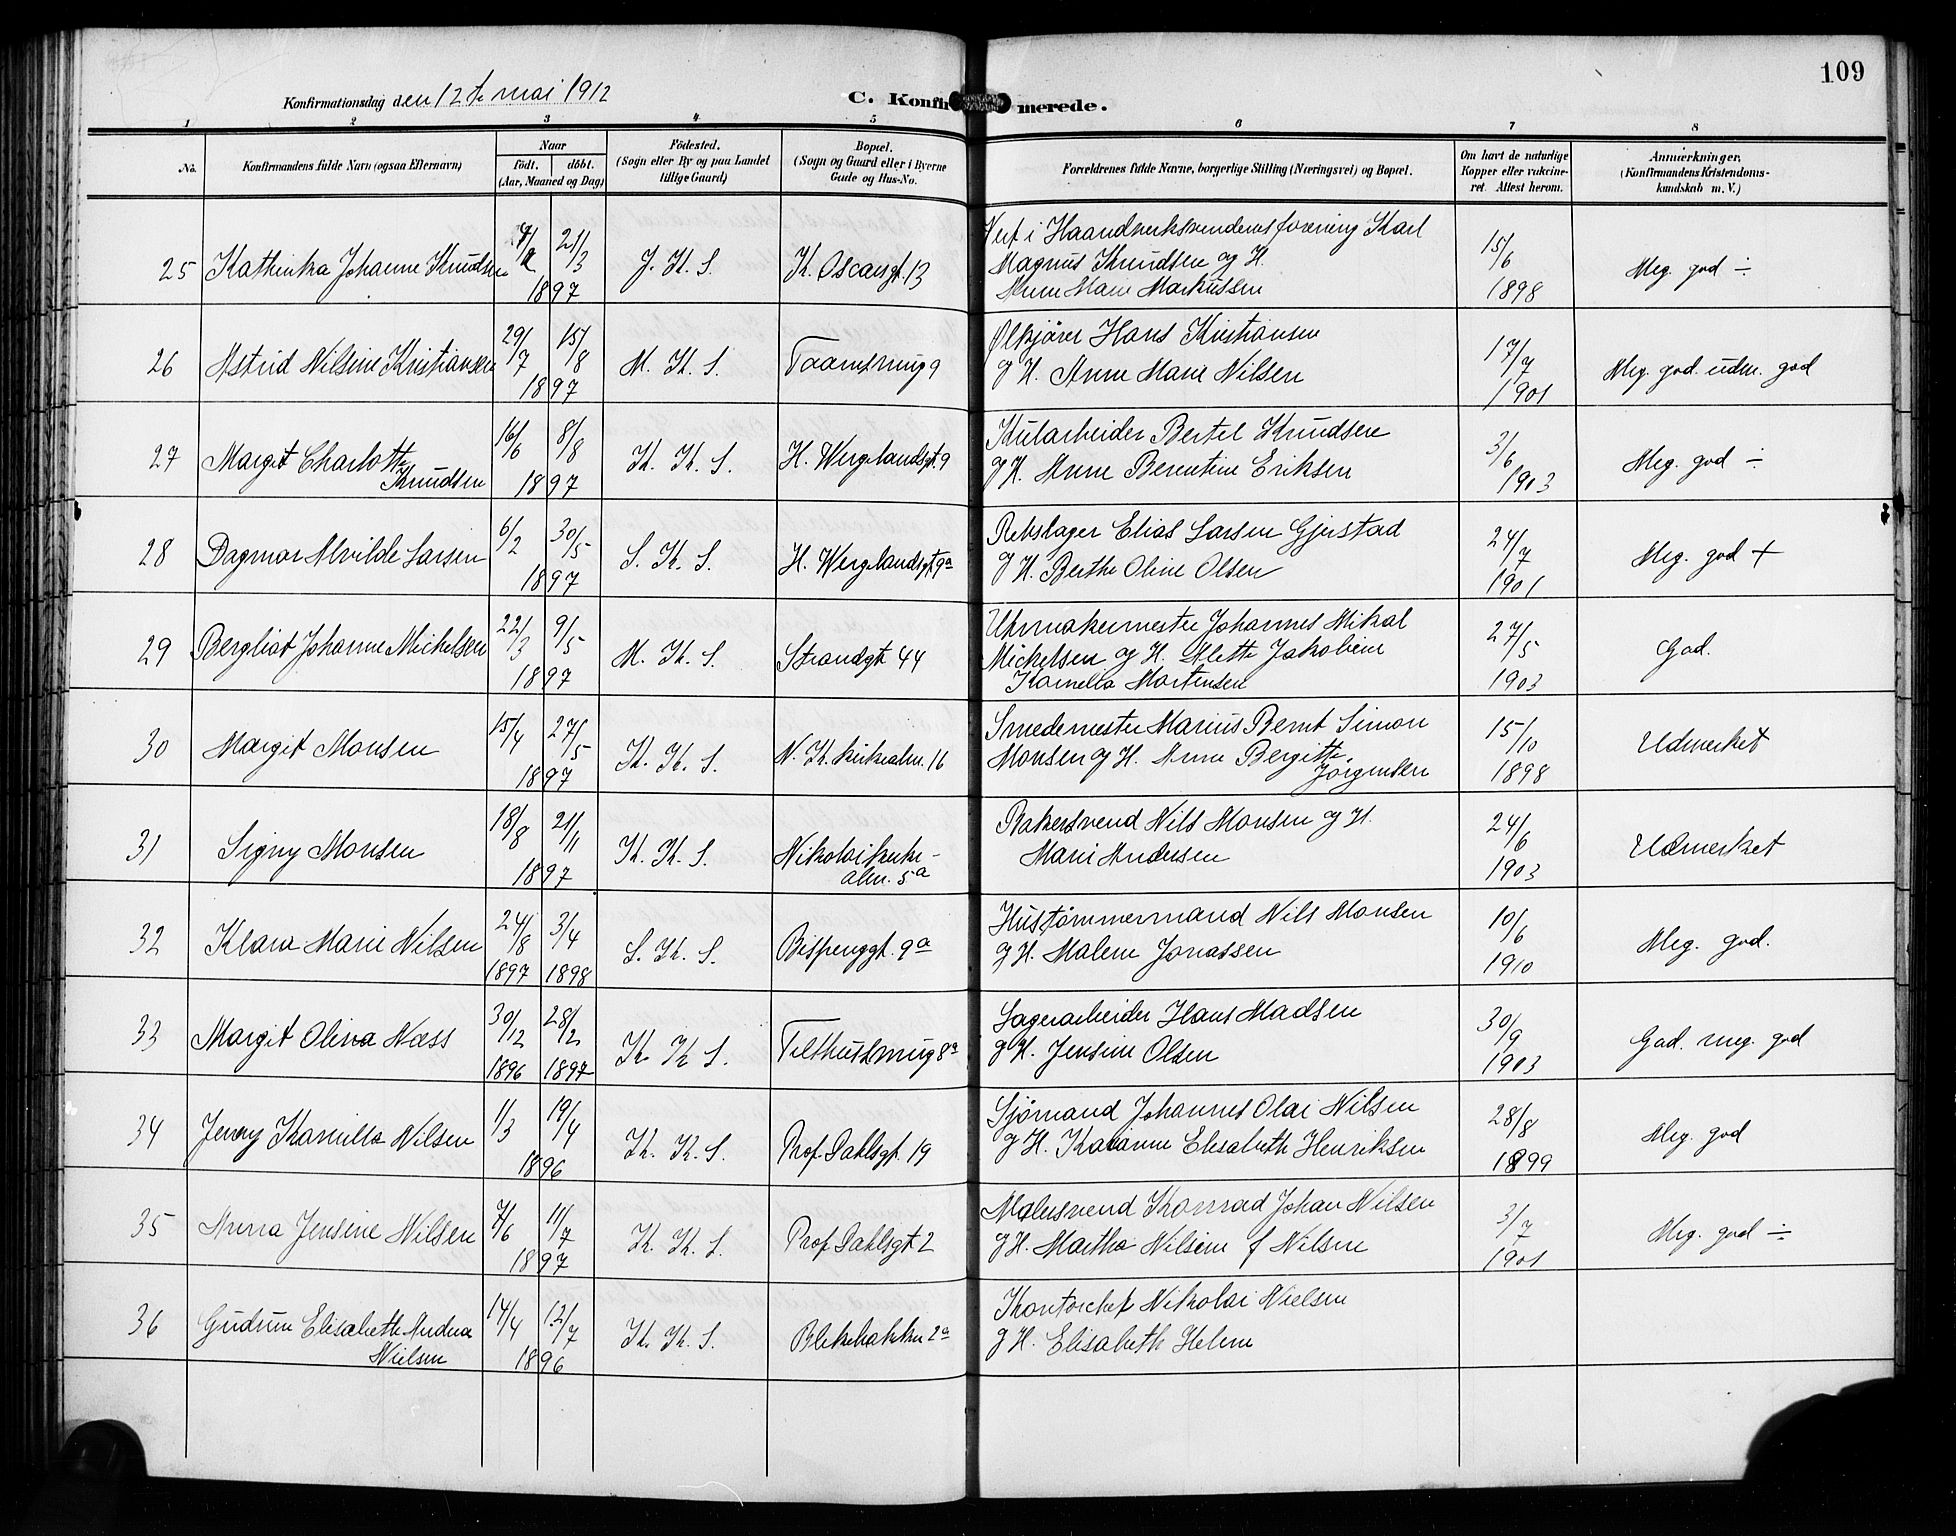 109
Konfirmationsdag den 12te mai 1912
C. Konfirmerede.
1 2 3 4 5 6 7 8
No.
Konfirmandens fulde Navn (ogsaa Efternavn)
Naar
født. døbt.
(Aar, Maaned og Dag)
Fødested.
(Sogn eller By og paa Landet
tillige Gaard)
Bopæl.
(Sogn og Gaard eller i Byerne
Gade og Hus-No.
Forældrenes fulde Navne, borgerlige Stilling (Næringsvei) og Bopæl.
Om havt de naturlige
Kopper eller vakcine-
ret. Attest herom.
Anmærkninger,
(Konfirmandens Kristendoms-
kundskab m. V.)
25 Kathinka Johanne Knudsen 21/3 1897 J. K. S. K. Oscarsgt. 13
Vert i Haandverksvendenes forening Karl
Magnus Knudsen og H.
Anne Marie Markussen
15/6 1898 Meg. god ÷
26 Astrid Nilsine Kristiansen 29/7 15/8 1897 M. K. S. Taarnsmug 9
Ølkjører Hans Kristiansen
og H. Anne Marie Nilsen
17/7 1901 Meg. god. udm. god
27 Margit Charlotte
Knudsen 16/6 8/8 1897 K. K. S. H. Wergelandsgt. 9
Kularbeider Bertel Knudsen
og H. Anne Berentine Eriksen
3/6 1903 Meg. god ÷
28 Dagmar Alvilde Larsen 6/2 30/5 1897 S. K. S. H. Wergelandsgt 9a
Rebslager Elias Larsen Gjerstad
og H. Berthe Oline Olsen
24/7 1901 Meg. god +
29 Bergliot Johanne Mickelsen 22/3 9/5 1897 M. K. S. Strandgt 44
Uhrmakermester Johannes Mikal
Mickelsen og H. Alette Jakobine
Kornelia Mortensen
27/5 1903 God.
30 Margit Monsen 15/4 27/5 1897 K. K. S. N. K. kirkealm. 16
Smedemester Marius Bernt Simon
Monsen og H. Anne Bergitte
Jörgensen
15/10 1898 Udmerket
31 Signy Monsen 18/8 21/11 1897 K. K. S. Nikolaikirke-
alm. 5a
Bakersvend Nils Monsen og H.
Marie Andersen
24/6 1903 Udmerket
32 Klara Marie Nilsen 24/8 1897 3/4 1898 S. K. S. Bispenggt. 9a
Hustømmermand Nils Monsen
og H. Malene Jonassen
10/6 1910 Meg. god.
33 Margit Olina Næss 30/12 1896 28/2 1897 K. K. S. Telthussmug 8a
Lagerarbeider Hans Madsen
og H. Jensine Olsen
30/9 1903 God. meg. god
34 Jenny Kamilla Nilsen 1/3 19/4 1896 K. K. S. Prof. Dahlsgt. 19
Sjömand Johannes Olai Nilsen
og H. Elisabeth Henriksen
28/8 1899 Meg. god
35 Anna Jensine Nilsen 7/6 11/7 1897 K. K. S. Prof. Dahlsgt 2
Malersvend Konrad Johan Nilsen
og H. Martha Nilsine f Nilsen
3/7 1901 Meg. god ÷
36 Gudrun Elisabeth Andrea
Nielsen 14/4 12/7 1896 K. K. S. Blekebakken 2a
Kontorchef Nikolai Nielsen
og H. Elisabeth Helene